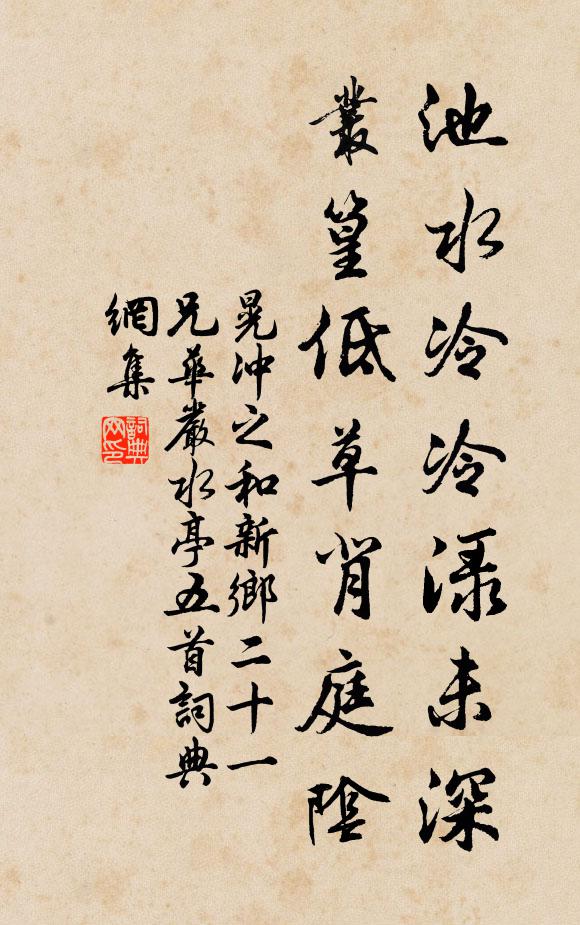 池水冷冷淥未深
叢篁低草背庭陰
晁冲之和新鄉二十一
兄華嚴水亭五首詞典
網集
詞典
网印